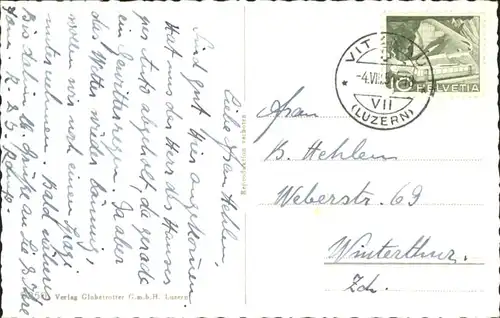 Liebe Frau Hehlen,
Sind gut hier angekommen
Hat uns der Herr des Hauses
per Auto abgeholt, da gerade
ein Gewitterregen. Da aber
das Wetter wieder sonnig,
wollen wir noch einen Spazi
unternehmen. Bald weiteres
Bis dahin lb Grüße an Sie & Ihre
Verlag Globetrotter G.m.b.H. Luzern
Reproduktion verboten
VITZNAU
-4.VII.
VII
(LUZERN)
10
HELVETIA
Frau
B. Hehlen
Weberstr. 69
Winterthur.
Zch.